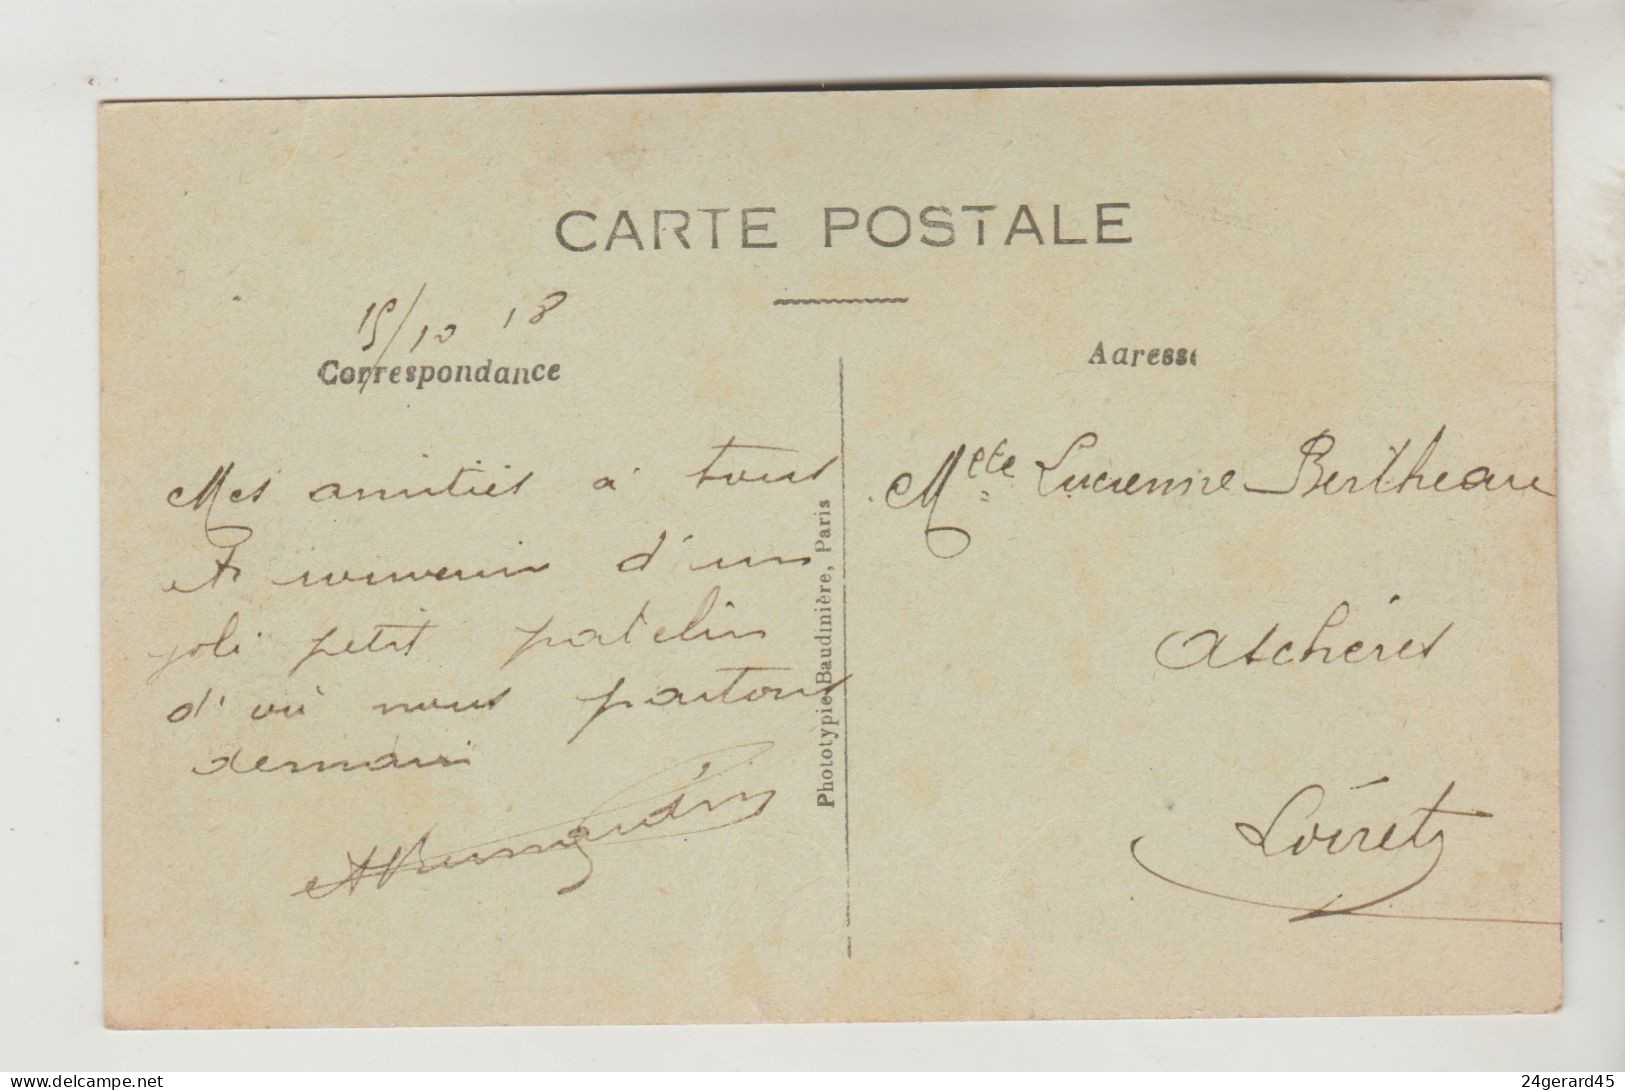 CARTE POSTALE
15/10 18
Correspondance
Mes amitiés à tous
Et souvenir d'un
joli petit patelin
d'où nous partons
demain
Phototypie Baudinière, Paris
Adresse
Melle Lucienne Bertheau
Aschères
Loiret
24gerard45
www.delcampe.net